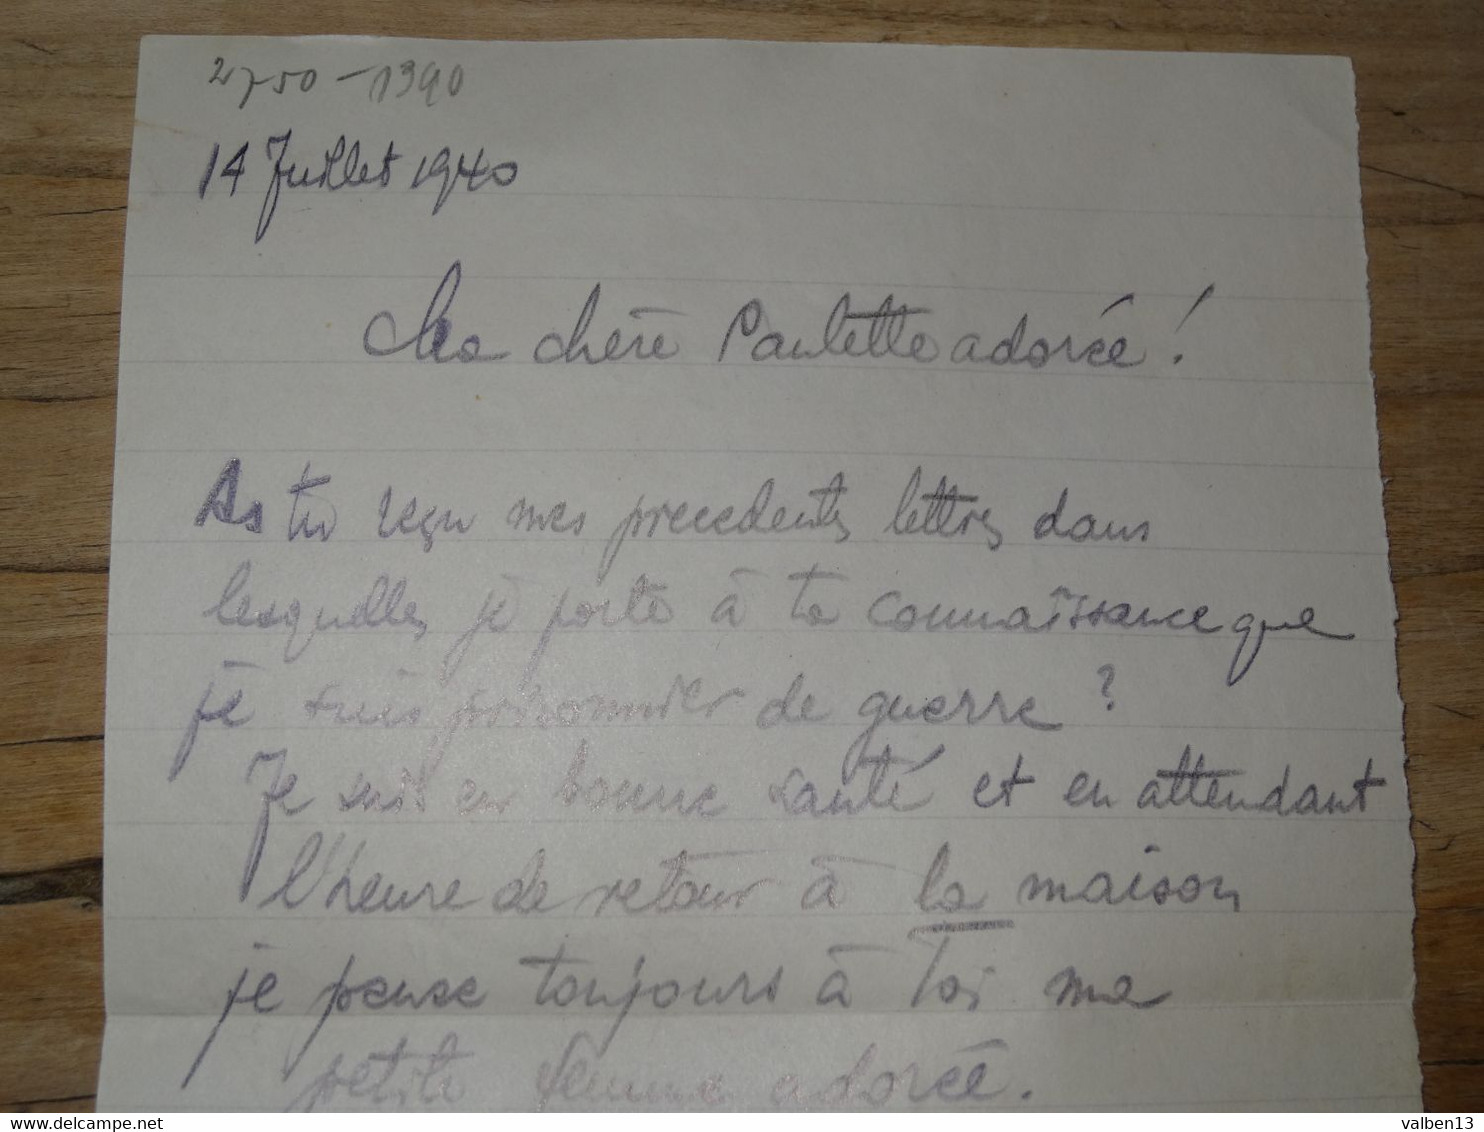 2750-1390
14 Juillet 1940
Ma chère Paulette adorée !
As tu reçu mes precedents lettres dans
lesquelles je porte à ta connaissance que
je suis prisonnier de guerre ?
Je suis en bonne santé et en attendant
l'heure de retour à la maison
je pense toujours à Toi ma
petite femme adorée.
delcampe.net
valben13